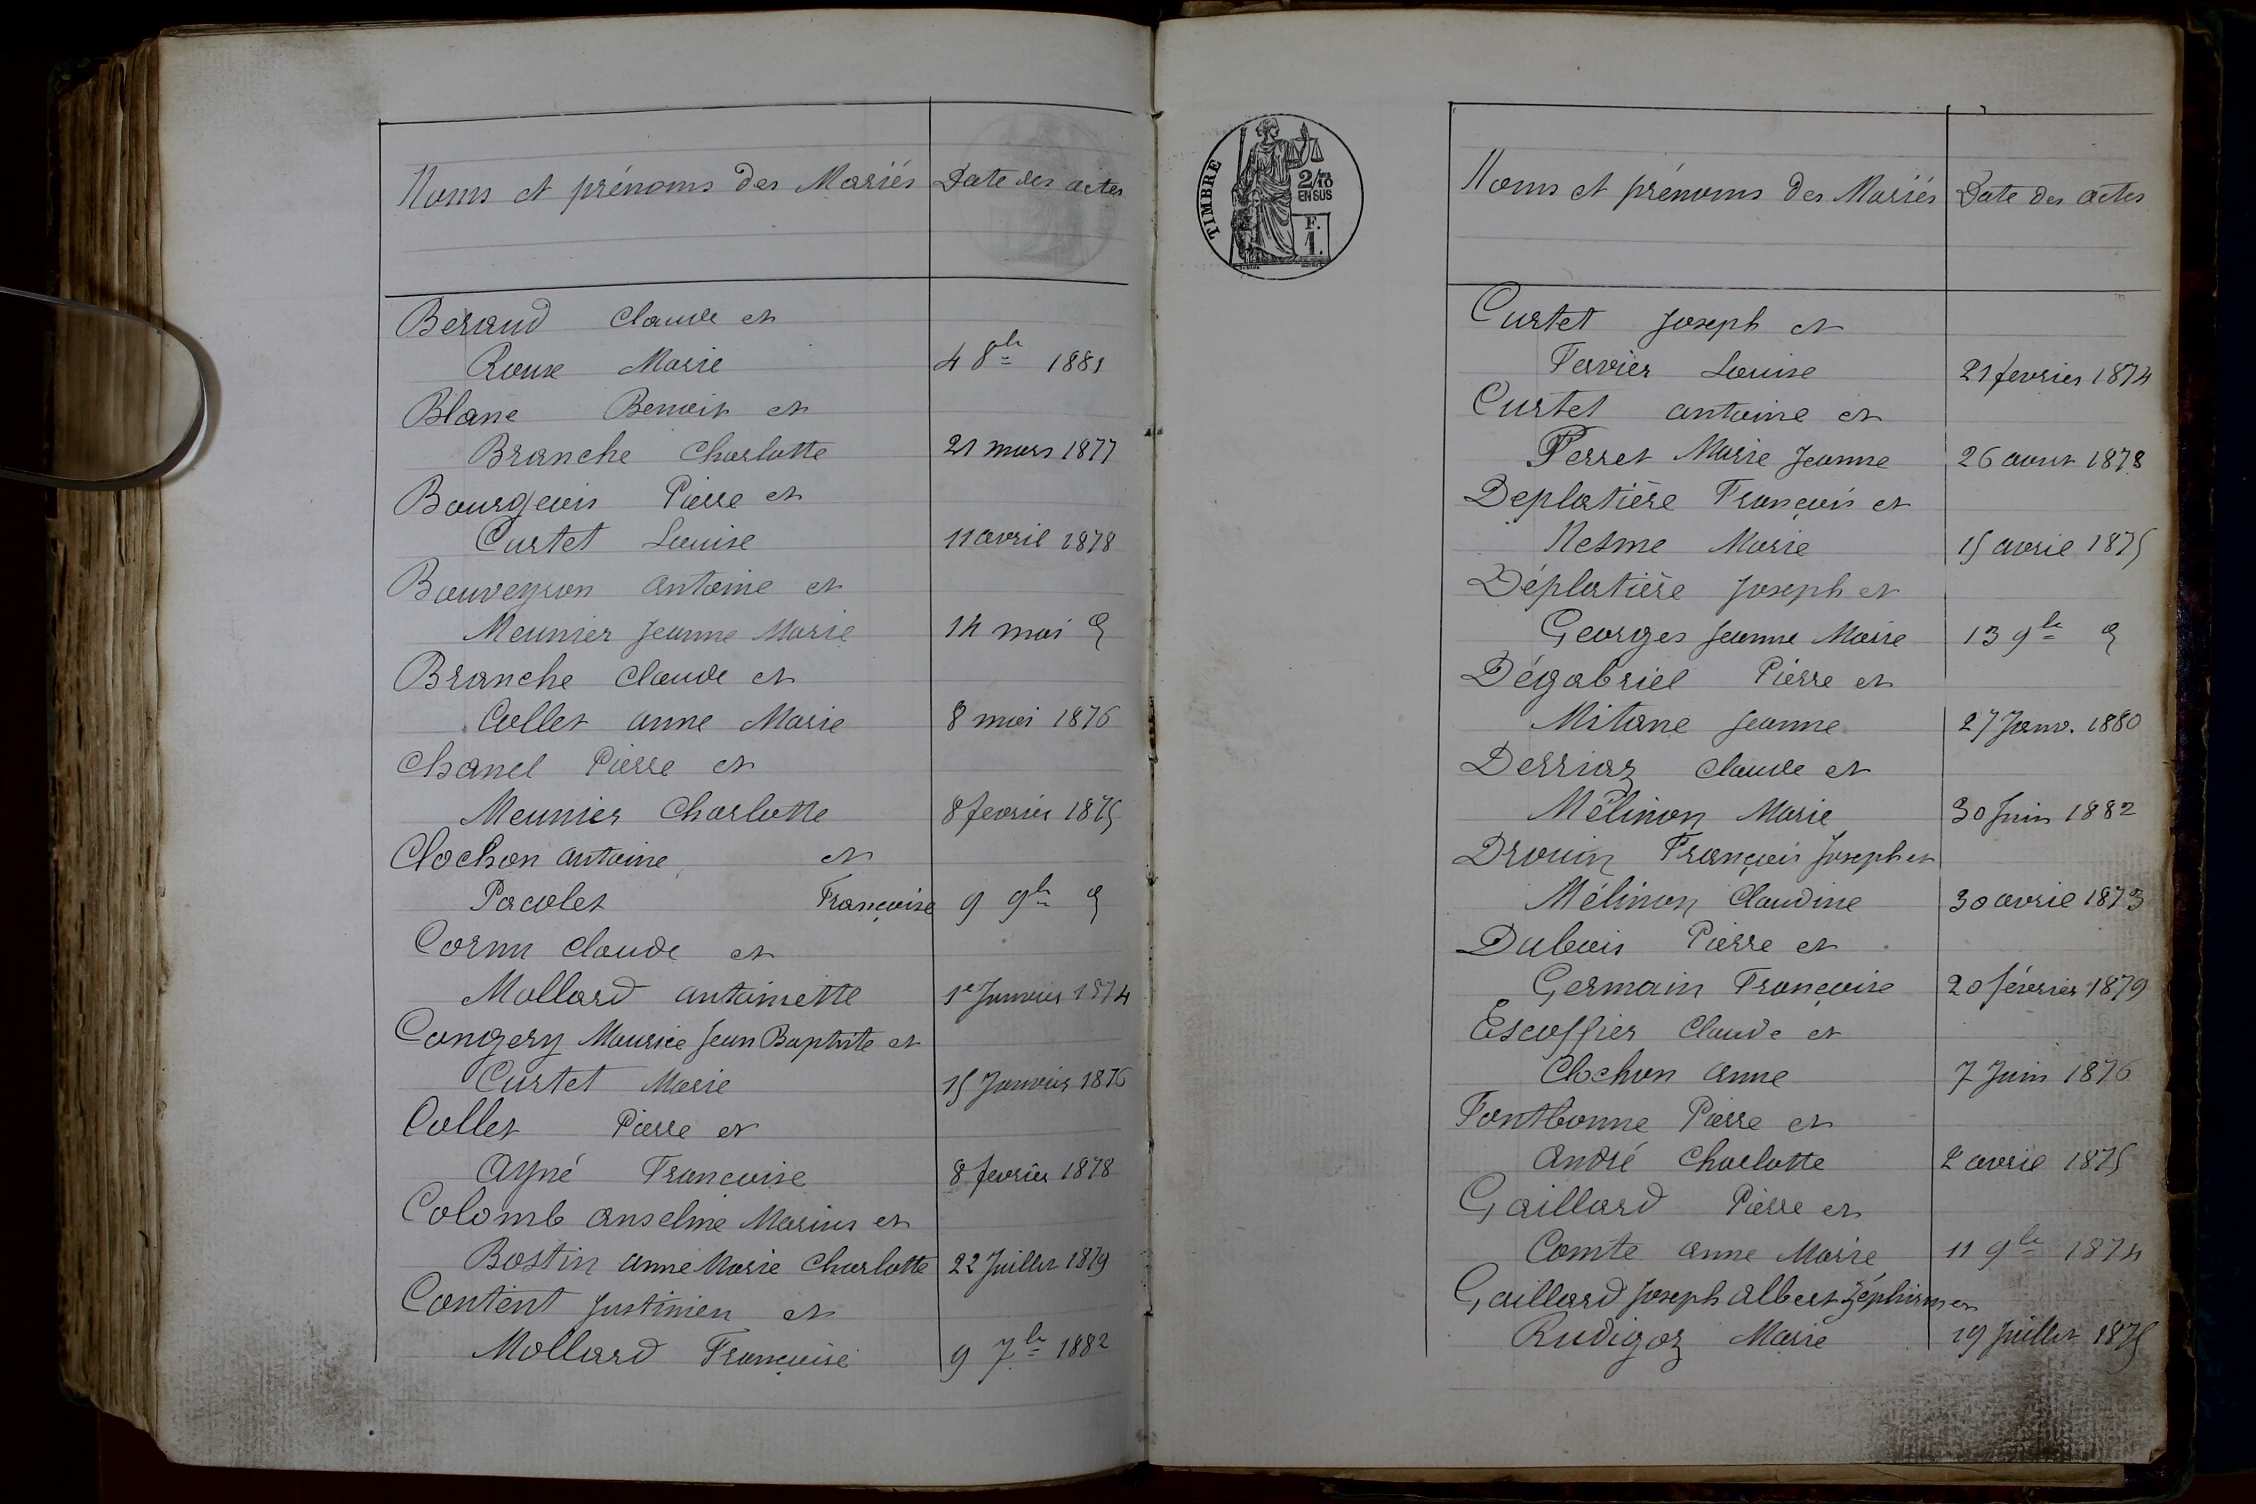 Noms et prénoms des Mariés Date des actes
Béraud Claude et
Roux Marie 4 8bre 1881
Blanc Benoit et
Branche Charlotte 21 mars 1877
Bourgeois Pierre et
Curtet Louise 11 avril 1878
Bouveyron antoine et
Meunier Jeanne Marie 14 mai d
Branche Claude et
Collet anne Marie 8 mai 1876
Chanel Pierre et
Meunier Charlotte 8 fevrier 1875
Clochon antoine et
Pacolet Françoise 9 9bre d
Cornu Claude et
Mollard antoinette 1e Janvier 1874
Congery Maurice Jean Baptiste et
Curtet Marie 15 Janvier 1876
Collet Pierre et
Ayné Francoise 8 fevrier 1878
Colomb anselme Marius et
Bostin anne Marie Charlotte 22 Juillet 1879
Content Justinien et
Mollard Françoise 9 7bre 1882
TIMBRE
2/10
EN SUS
F.
1.
Noms et prénoms des Mariés Date des actes
Curtet Joseph et
Fervier Louise 21 fevrier 1874
Curtet antoine et
Perret Marie Jeanne 26 aout 1878
Deplatière François et
Nesme Marie 15 avril 1875
Déplatière Joseph et
Georges Jeanne Marie 13 9bre d
Dégabriel Pierre et
Mitane Jeanne 27 Janv. 1880
Derriaz Claude et
Mélinon Marie 30 Juin 1882
Drouin François Joseph et
Mélinon Claudine 30 avril 1873
Dubois Pierre et
Germain Françoise 20 février 1879
Escoffier Claude et
Clochon anne 7 Juin 1876
Fontbonne Pierre et
André Charlotte 2 avril 1875
Gaillard Pierre et
Comte anne Marie 11 9bre 1874
Gaillard Joseph albert Zéphirin et
Rudigoz Marie 19 Juillet 1875